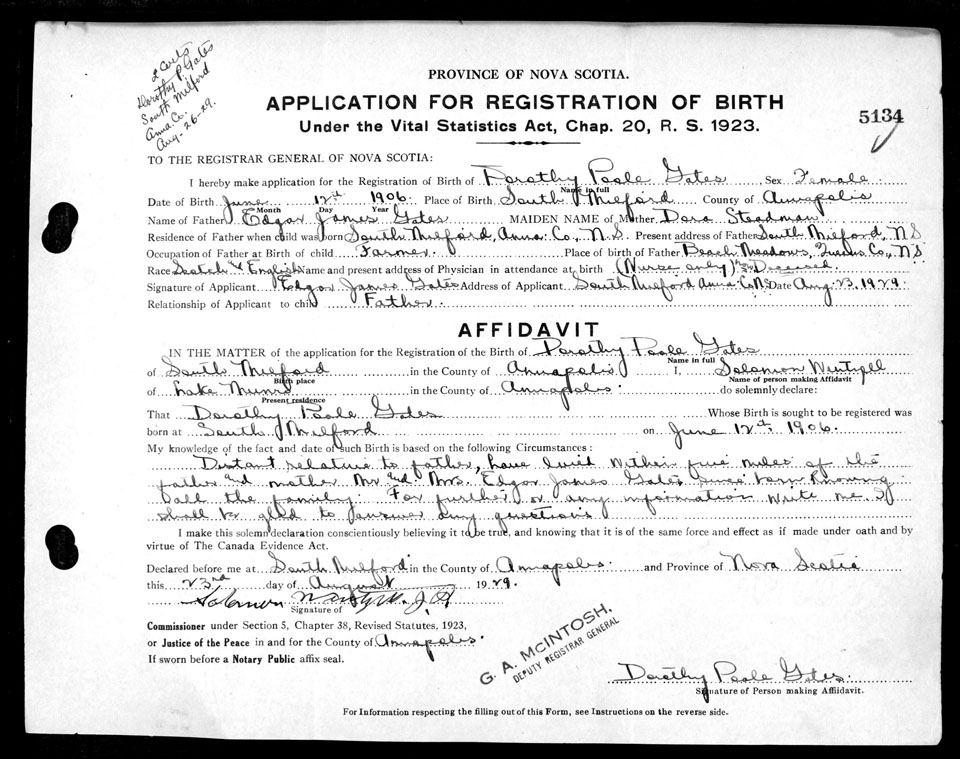 2 Certs
Dorothy P. Gates
South Milford
Anna. Co.
Aug-26-29.
PROVINCE OF NOVA SCOTIA.
APPLICATION FOR REGISTRATION OF BIRTH
5134
Under the Vital Statistics Act, Chap. 20, R. S. 1923.
TO THE REGISTRAR GENERAL OF NOVA SCOTIA:
I hereby make application for the Registration of Birth of Dorothy Poole Gates Sex Female
Name in full
Date of Birth June 12th 1906. Place of Birth South Milford County of Annapolis
Month Day Year
Name of Father Edgar James Gates MAIDEN NAME of Mother Dora Steadman
Residence of Father when child was born South Milford, Anna. Co., N.S. Present address of Father South Milford, N.S.
Occupation of Father at Birth of child Farmer Place of birth of Father Beach Meadows, Queens Co., N.S.
Race Scotch & English Name and present address of Physician in attendance at birth (Nurse only) Deceased.
Signature of Applicant Edgar James Gates Address of Applicant South Milford Anna. Co. N.S. Date Aug. 23, 1929.
Relationship of Applicant to child Father.
AFFIDAVIT
IN THE MATTER of the application for the Registration of the Birth of Dorothy Poole Gates
Name in full
of South Milford in the County of Annapolis I, Solomon Wentzell
Birth place Name of person making Affidavit
of Lake Munro in the County of Annapolis. do solemnly declare:
Present residence
That Dorothy Poole Gates Whose Birth is sought to be registered was
born at South Milford on June 12th, 1906.
My knowledge of the fact and date of such Birth is based on the following Circumstances:
Distant relative to father, have lived within five miles of the
father and mother Mr and Mrs. Edgar James Gates since born knowing
all the family. For further or any information write me I
shall be glad to answer any questions
I make this solemn declaration conscientiously believing it to be true, and knowing that it is of the same force and effect as if made under oath and by
virtue of The Canada Evidence Act.
Declared before me at South Milford in the County of Annapolis. and Province of Nova Scotia
this 23rd day of August 1929.
Solomon Wentzell J.P.
Signature of
Commissioner under Section 5, Chapter 38, Revised Statutes, 1923,
or Justice of the Peace in and for the County of Annapolis.
If sworn before a Notary Public affix seal.
G. A. MCINTOSH.
DEPUTY REGISTRAR GENERAL
Dorothy Poole Gates.
Signature of Person making Affidavit.
For Information respecting the filling out of this Form, see Instructions on the reverse side.